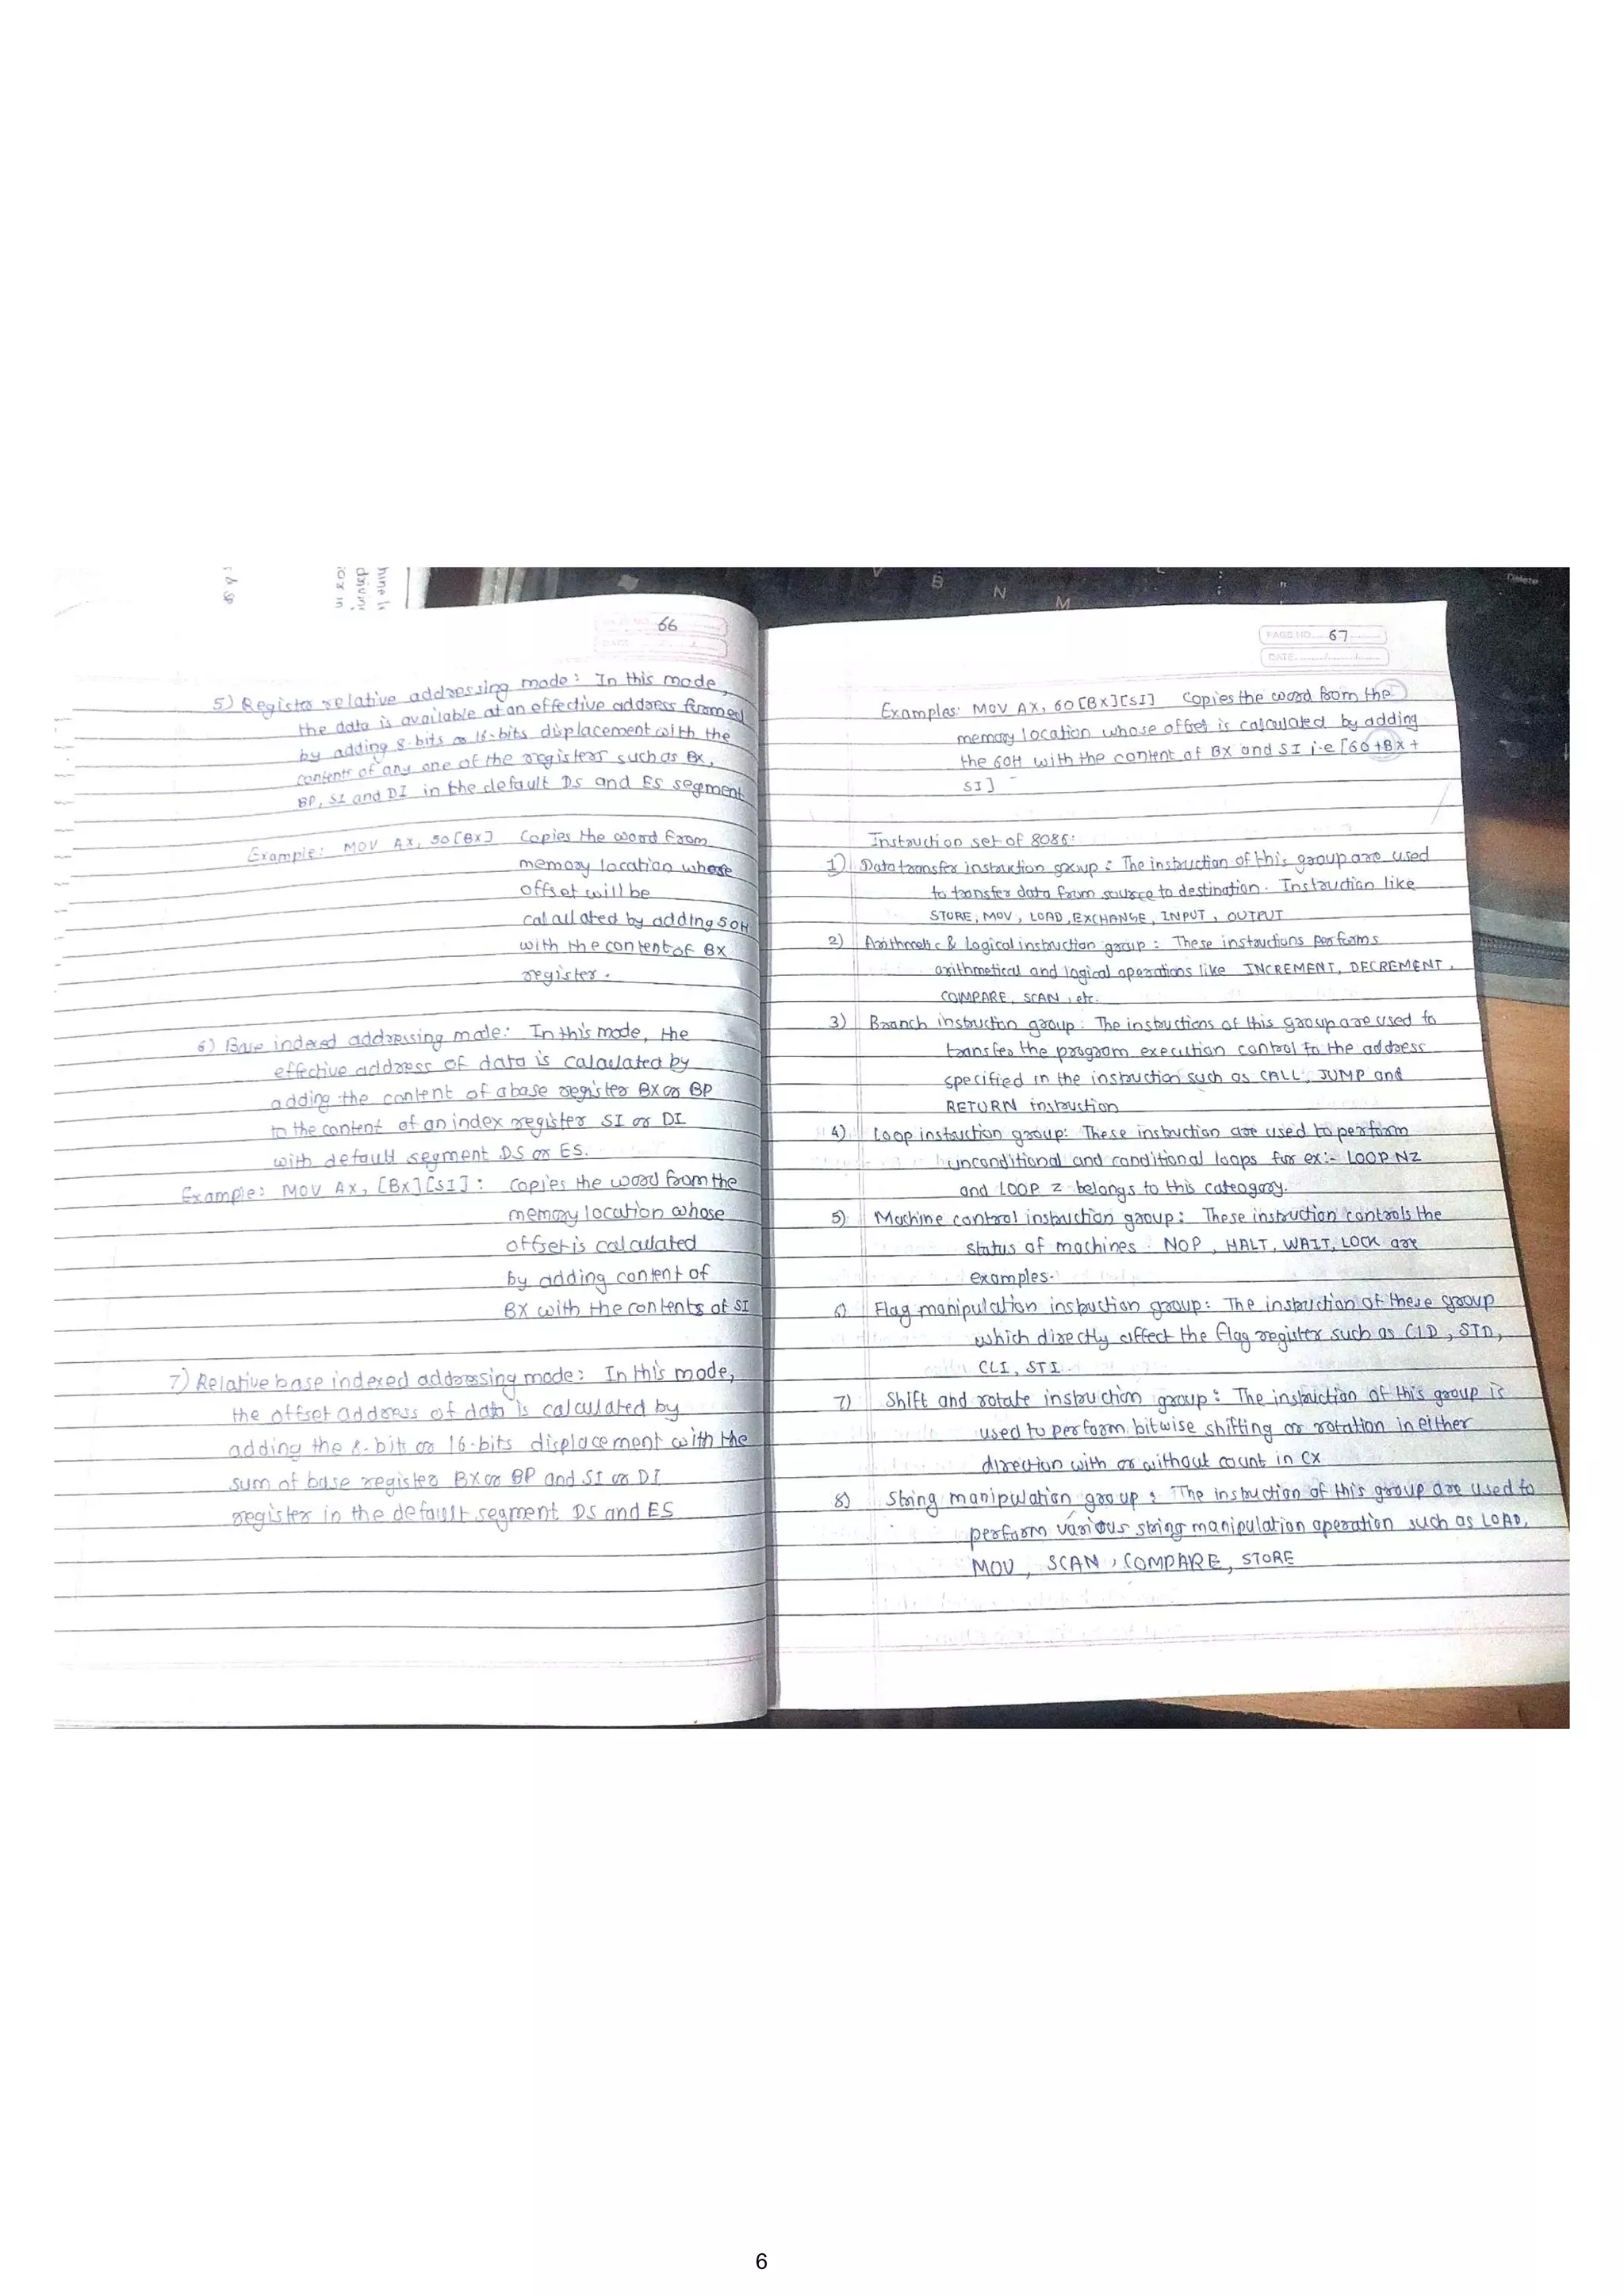 PAGE NO. 66
DATE
5) Register relative addressing mode: In this mode,
the data is available at an effective address formed
by adding 8-bits or 16-bits displacement with the
contents of any one of the registers such as BX,
BP, SI and DI in the default DS and ES segment.
Example: MOV AX, 50[BX] Copies the word from
memory location whose
offset will be
calaulated by adding 50H
with the content of BX
register.
6) Base indexed addressing mode: In this mode, the
effective address of data is calaulated by
adding the content of a base register BX or BP
to the content of an index register SI or DI
with default segment DS or ES.
Example: MOV AX, [BX][SI]: Copies the word from the
memory location whose
offset is calculated
by adding content of
BX with the contents of SI
7) Relative base indexed addressing mode: In this mode,
the offset address of data is calculated by
adding the 8-bit or 16-bits displacement with the
sum of base register BX or BP and SI or DI
register in the default segment DS and ES
PAGE NO. 67
DATE
Examples: MOV AX, 60[BX][SI] Copies the word from the
memory location whose offset is calculated by adding
the 60H with the content of BX and SI i.e [60+BX+
SI]
Instruction set of 8086:
1) Data transfer instruction group: The instruction of this group are used
to transfer data from source to destination. Instruction like
STORE, MOV, LOAD, EXCHANGE, INPUT, OUTPUT
2) Arithmetic & logical instruction group: These instructions performs
arithmetical and logical operations like INCREMENT, DECREMENT,
COMPARE, SCAN, etc.
3) Branch instruction group: The instructions of this group are used to
transfer the program execution control to the address
specified in the instruction such as CALL, JUMP and
RETURN instruction
4) Loop instruction group: These instruction are used to perform
unconditional and conditional loops for ex:- LOOP NZ
and LOOP Z belongs to this cateogory.
5) Machine control instruction group: These instruction controls the
status of machines. NOP, HALT, WAIT, LOCK are
examples.
6) Flag manipulation instruction group: The instruction of these group
which directly affect the flag register such as CLD, STD,
CLI, STI.
7) Shift and rotate instruction group: The instruction of this group is
used to perform bitwise shifting or rotation in either
direction with or without count in CX
8) String manipulation group: The instruction of this group are used to
perform various string manipulation operation such as LOAD,
MOV, SCAN, COMPARE, STORE
B N M
Delete
6